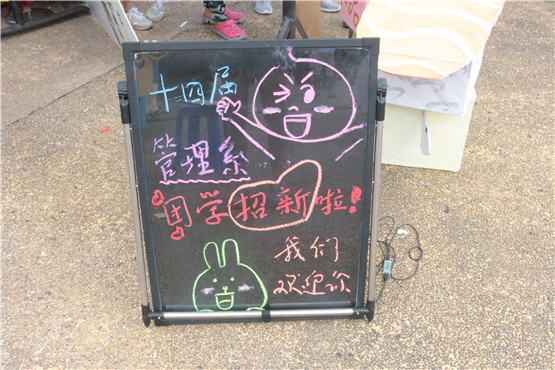 十四届
管理系
团学招新啦!
我们
欢迎你